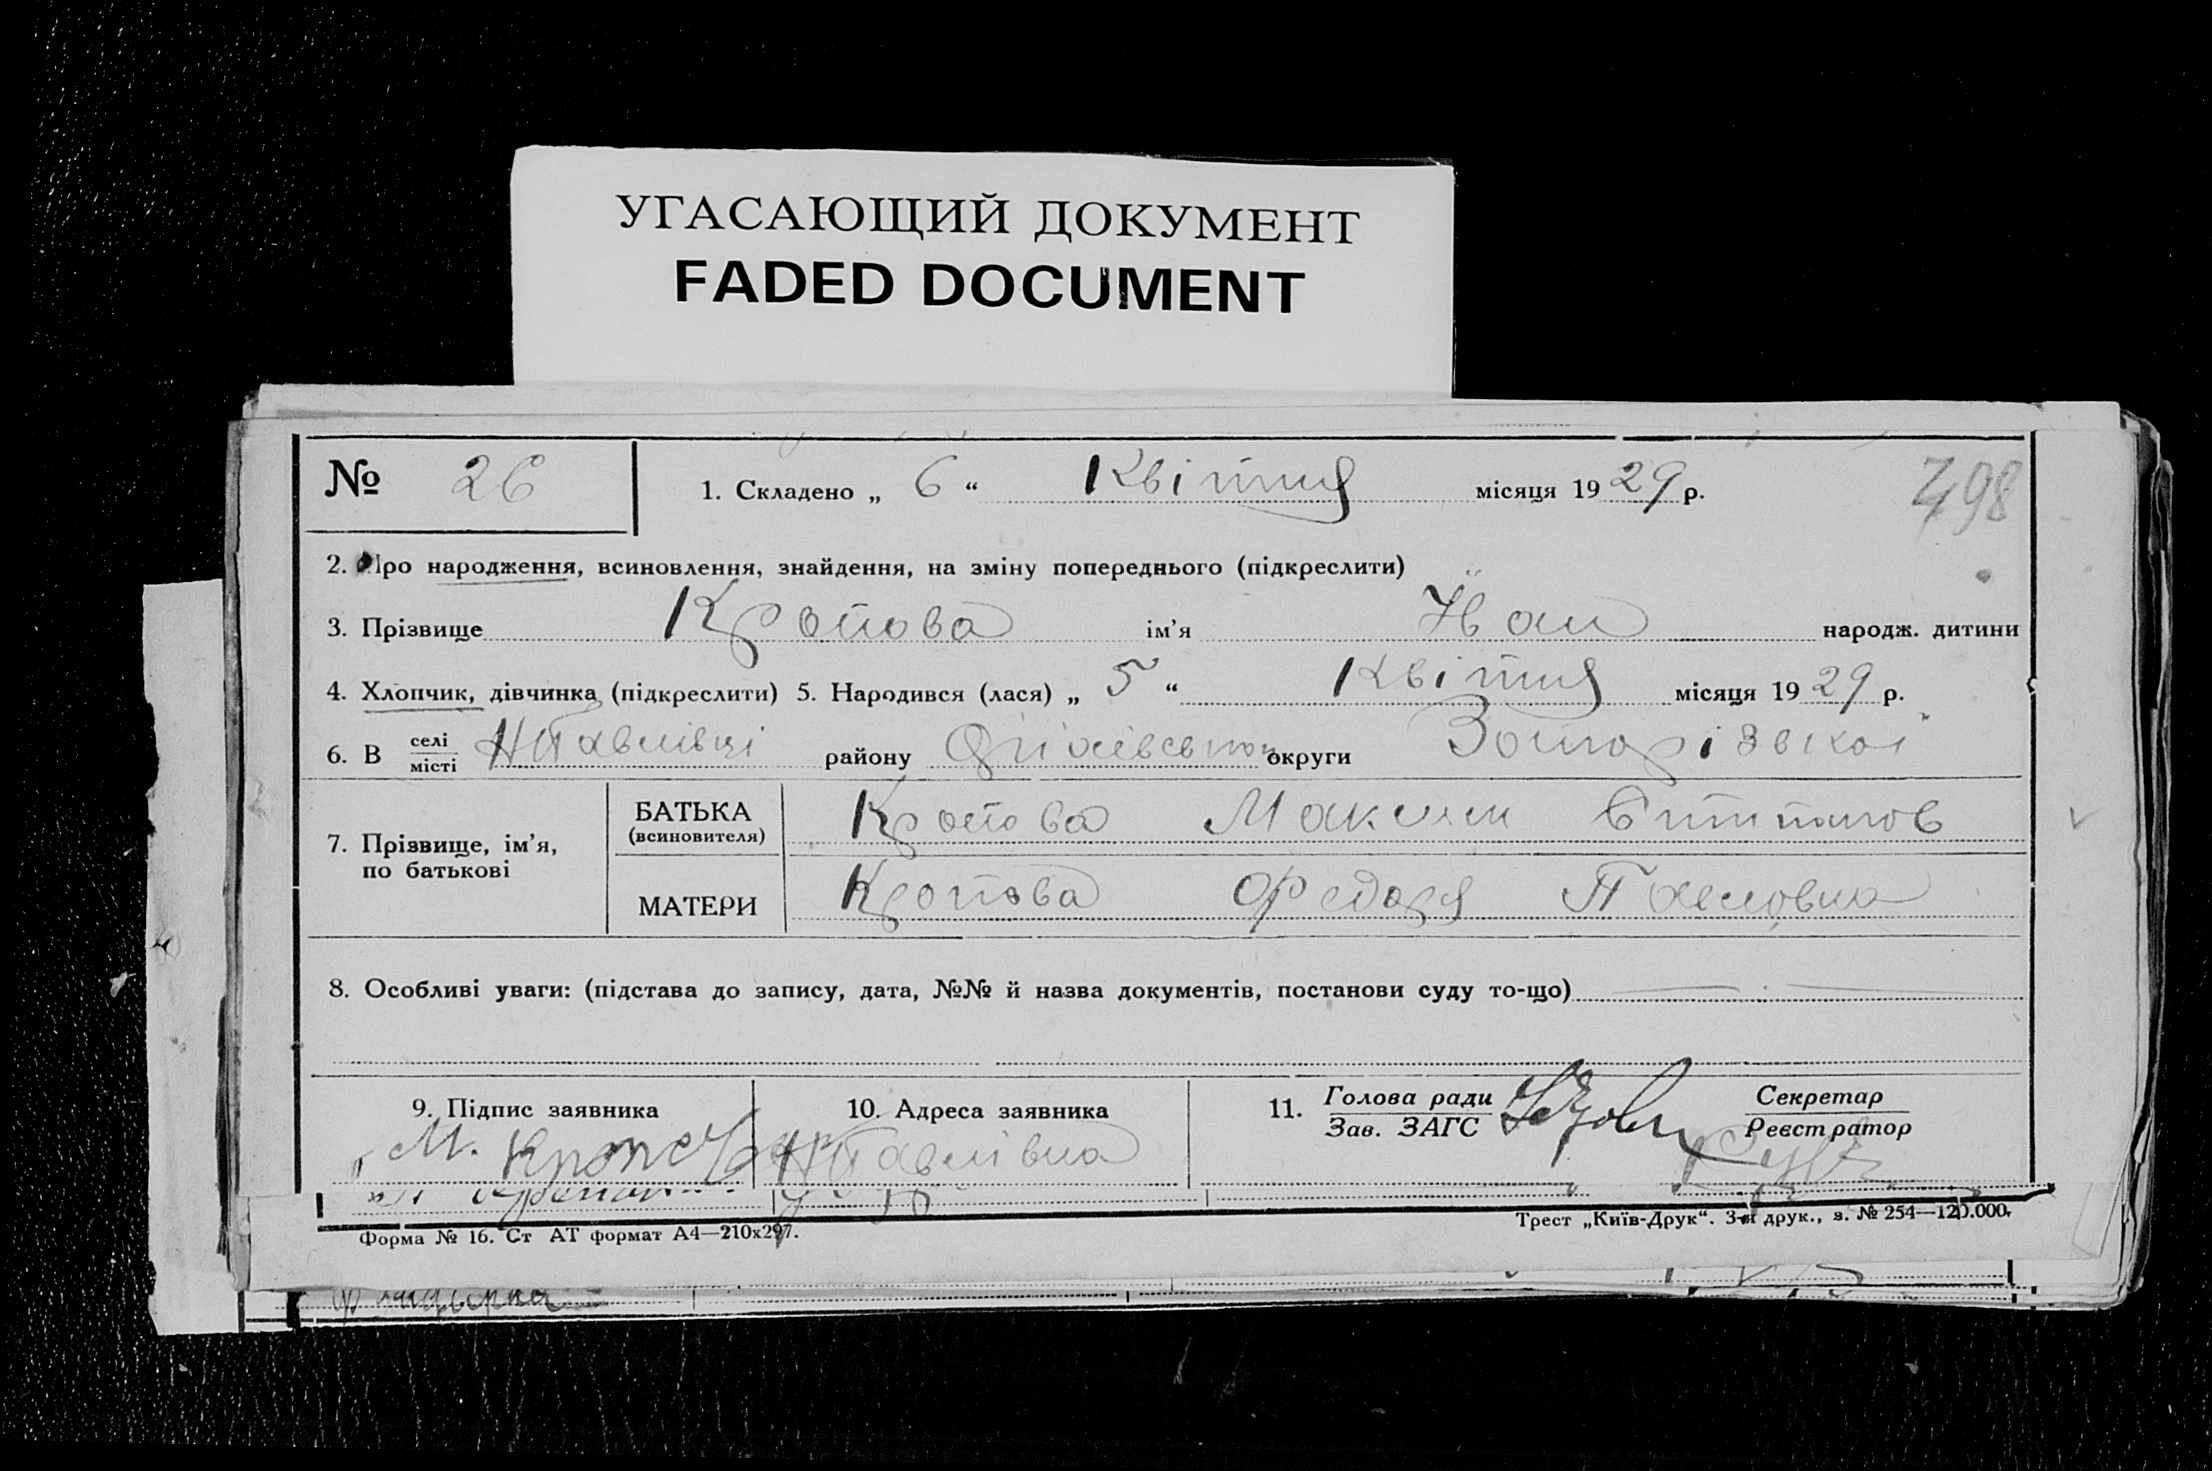 УГАСАЮЩИЙ ДОКУМЕНТ
FADED DOCUMENT
№ 26 1. Складено „ 6 “ Квітня місяця 1929 р. 498
2. Про народження, всиновлення, знайдення, на зміну попереднього (підкреслити)
3. Прізвище Кропова ім’я Іван народж. дитини
4. Хлопчик, дівчинка (підкреслити) 5. Народився (лася) „ 5 “ Квітня місяця 1929 р.
6. В селі місті Н Павлівці району округи Запорізької
7. Прізвище, ім’я, по батькові
БАТЬКА (всиновителя) Кропова Максим
МАТЕРИ Кропова Федора Павловна
8. Особливі уваги: (підстава до запису, дата, №№ й назва документів, постанови суду то-що)
9. Підпис заявника 10. Адреса заявника 11. Голова ради Зав. ЗАГС Секретар Реєстратор
М. Н Павлівка
Форма № 16. Ст АТ формат А4—210х297.
Трест „Київ-Друк“. 3-я друк., з. № 254—120.000.